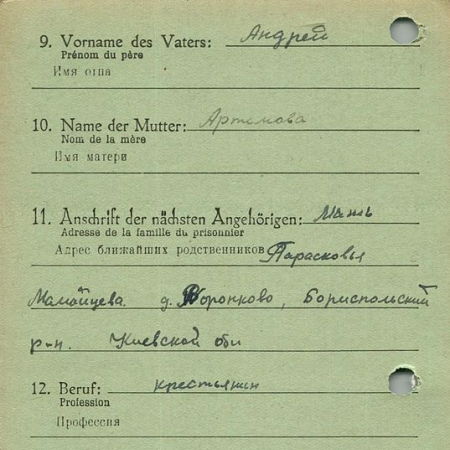 9. Vorname des Vaters: Андрей
Prénom du père
Имя отца
10. Name der Mutter: Артемова
Nom de la mère
Имя матери
11. Anschrift der nächsten Angehörigen: Мать
Adresse de la famille du prisonnier
Адрес ближайших родственников Парасковья
д. Воронково, Бориспольский
р-н. Киевской обл
12. Beruf: крестьянин
Profession
Профессия